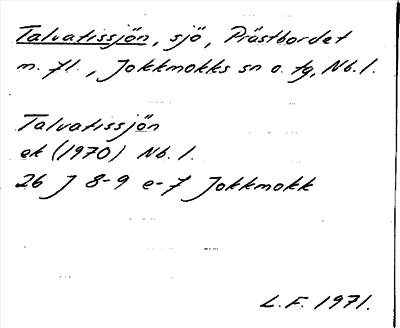 Talvatissjön, sjö, Prästbordet
m. fl., Jokkmokks sn o. tg, Nb. l.
Talvatissjön
ek (1970) Nb. l.
26 J 8-9 e-f Jokkmokk
L.F. 1971.